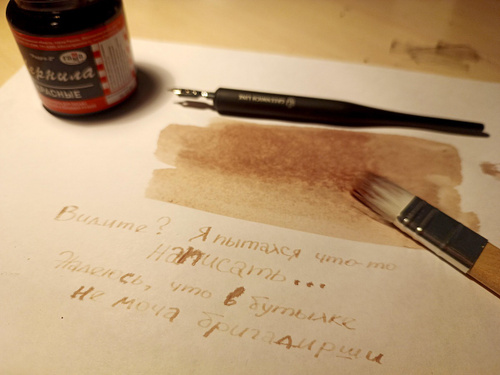 ГАММА
Чернила
КРАСНЫЕ
GREENWICH LINE
Видите? Я пытахся что-то
написать...
Надеюсь, что в бутылке
не моча бригадирши